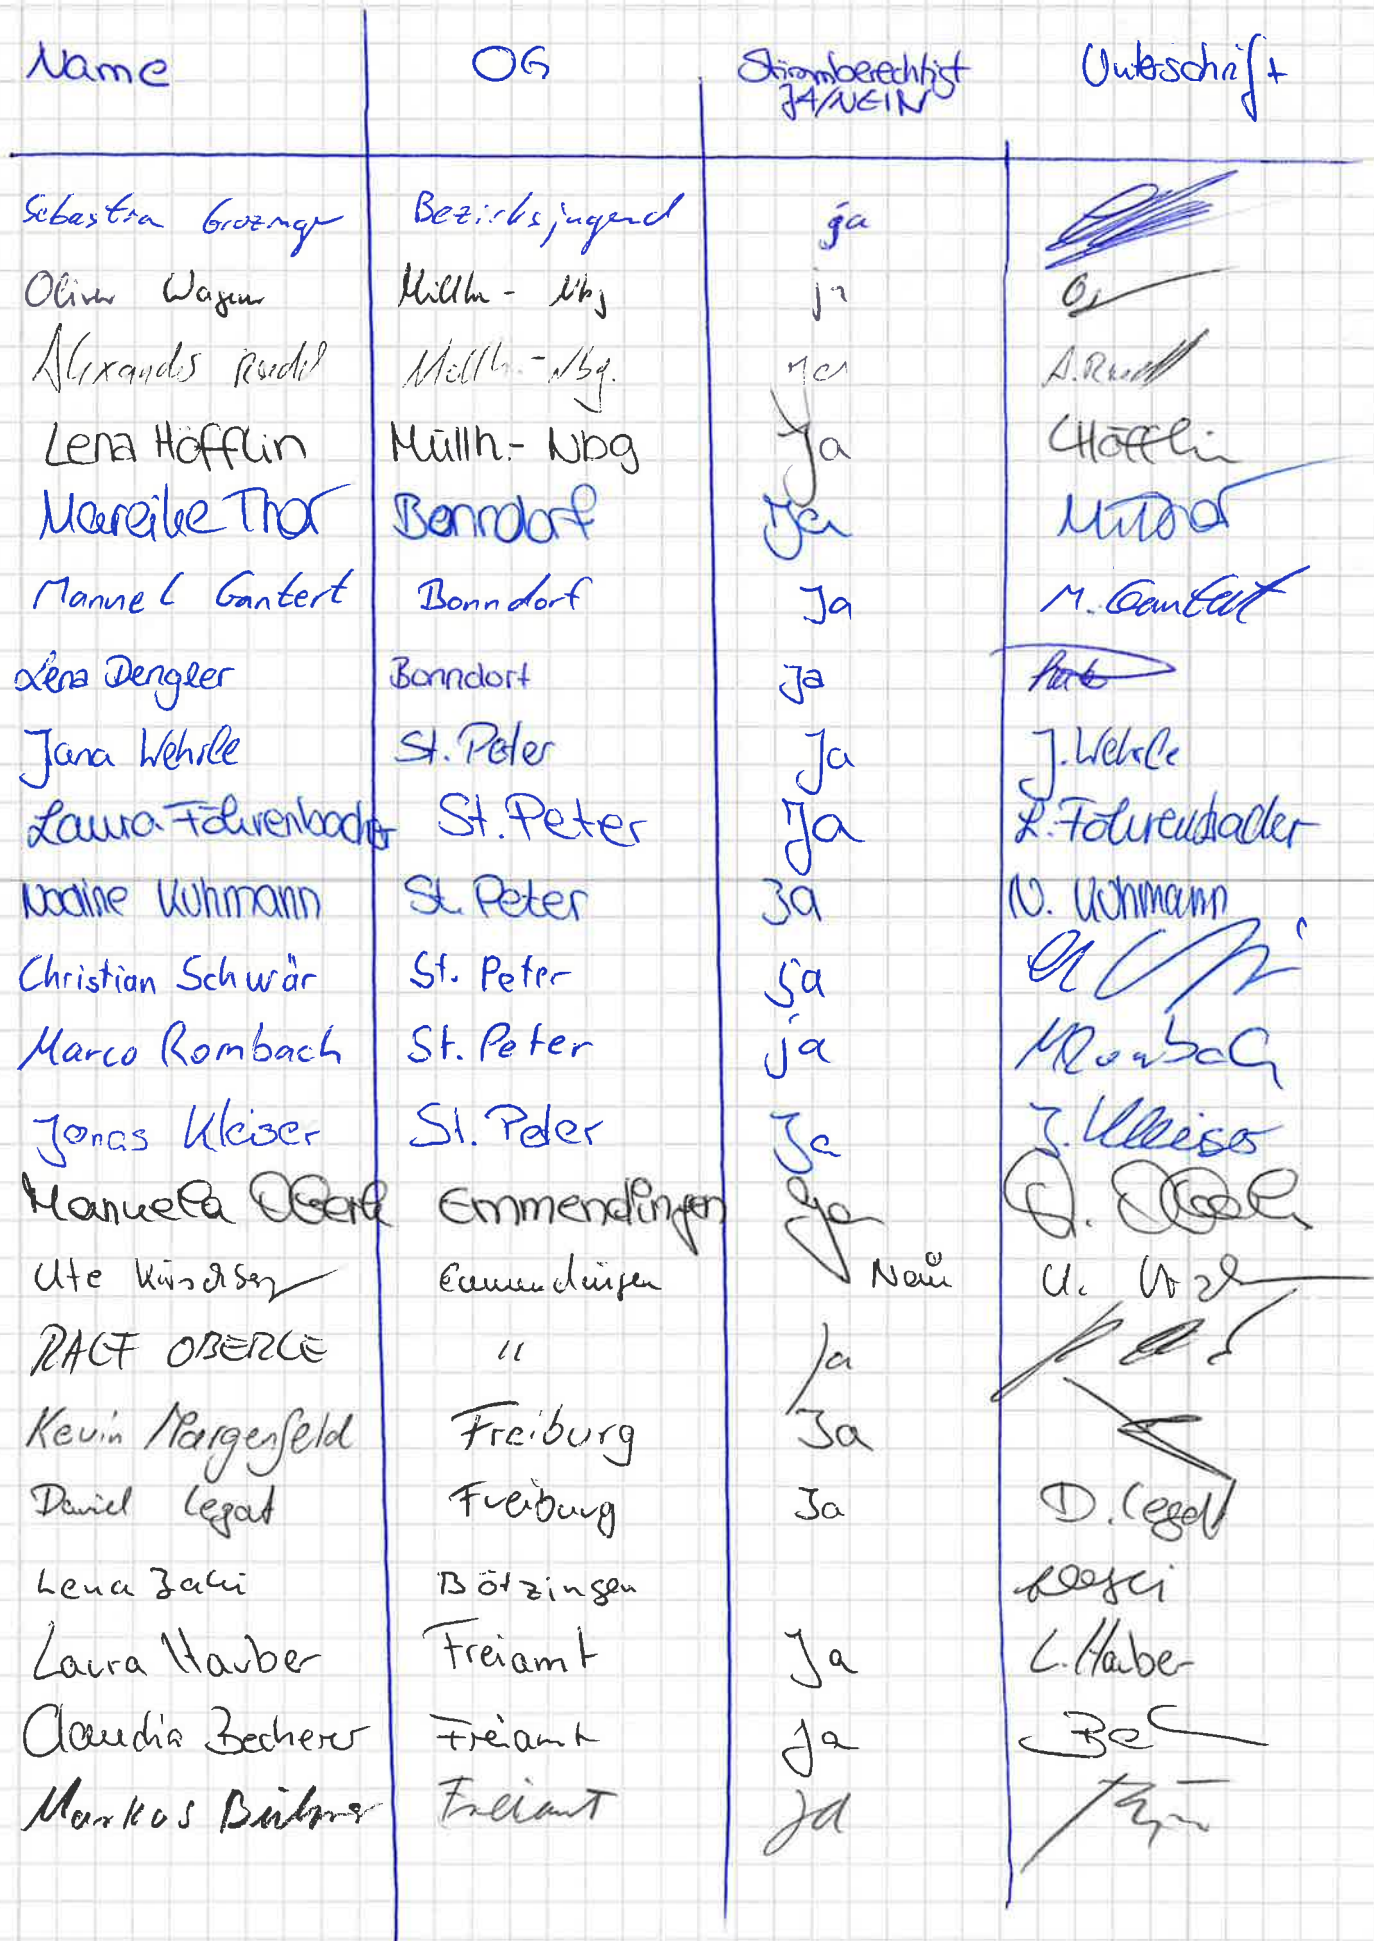 Name OG Stimmberechtigt Unterschrift
JA/NEIN
Sebastian Bezirksjugend ja
Oliver Wagner Müllh - Nbg ja
Alexander Müllh.-Nbg. ja A.
Lena Höfflin Müllh.- Nbg Ja LHöfflin
Mareike Thor Bonndorf Ja M.Thor
Manuel Gantert Bonndorf Ja M. Gantert
Lena Dengler Bonndorf Ja
Jana Wehrle St. Peter Ja J. Wehrle
Laura Föhrenbacher St. Peter Ja L. Föhrenbacher
Nadine Kuhmann St. Peter Ja N. Kuhmann
Christian Schwär St. Peter ja
Marco Rombach St. Peter ja MRombach
Jonas Kleiser St. Peter Ja J. Kleiser
Manuela Oberle Emmendingen Ja
Ute Emmendingen Nein U.
RALF OBERLE " Ja
Kevin Morgenfeld Freiburg Ja
Daniel Legat Freiburg Ja D. Legat
Lena Bötzingen
Laura Hauber Freiamt Ja L. Hauber
Claudia Becherer Freiamt Ja
Markus Bührer Freiamt Ja